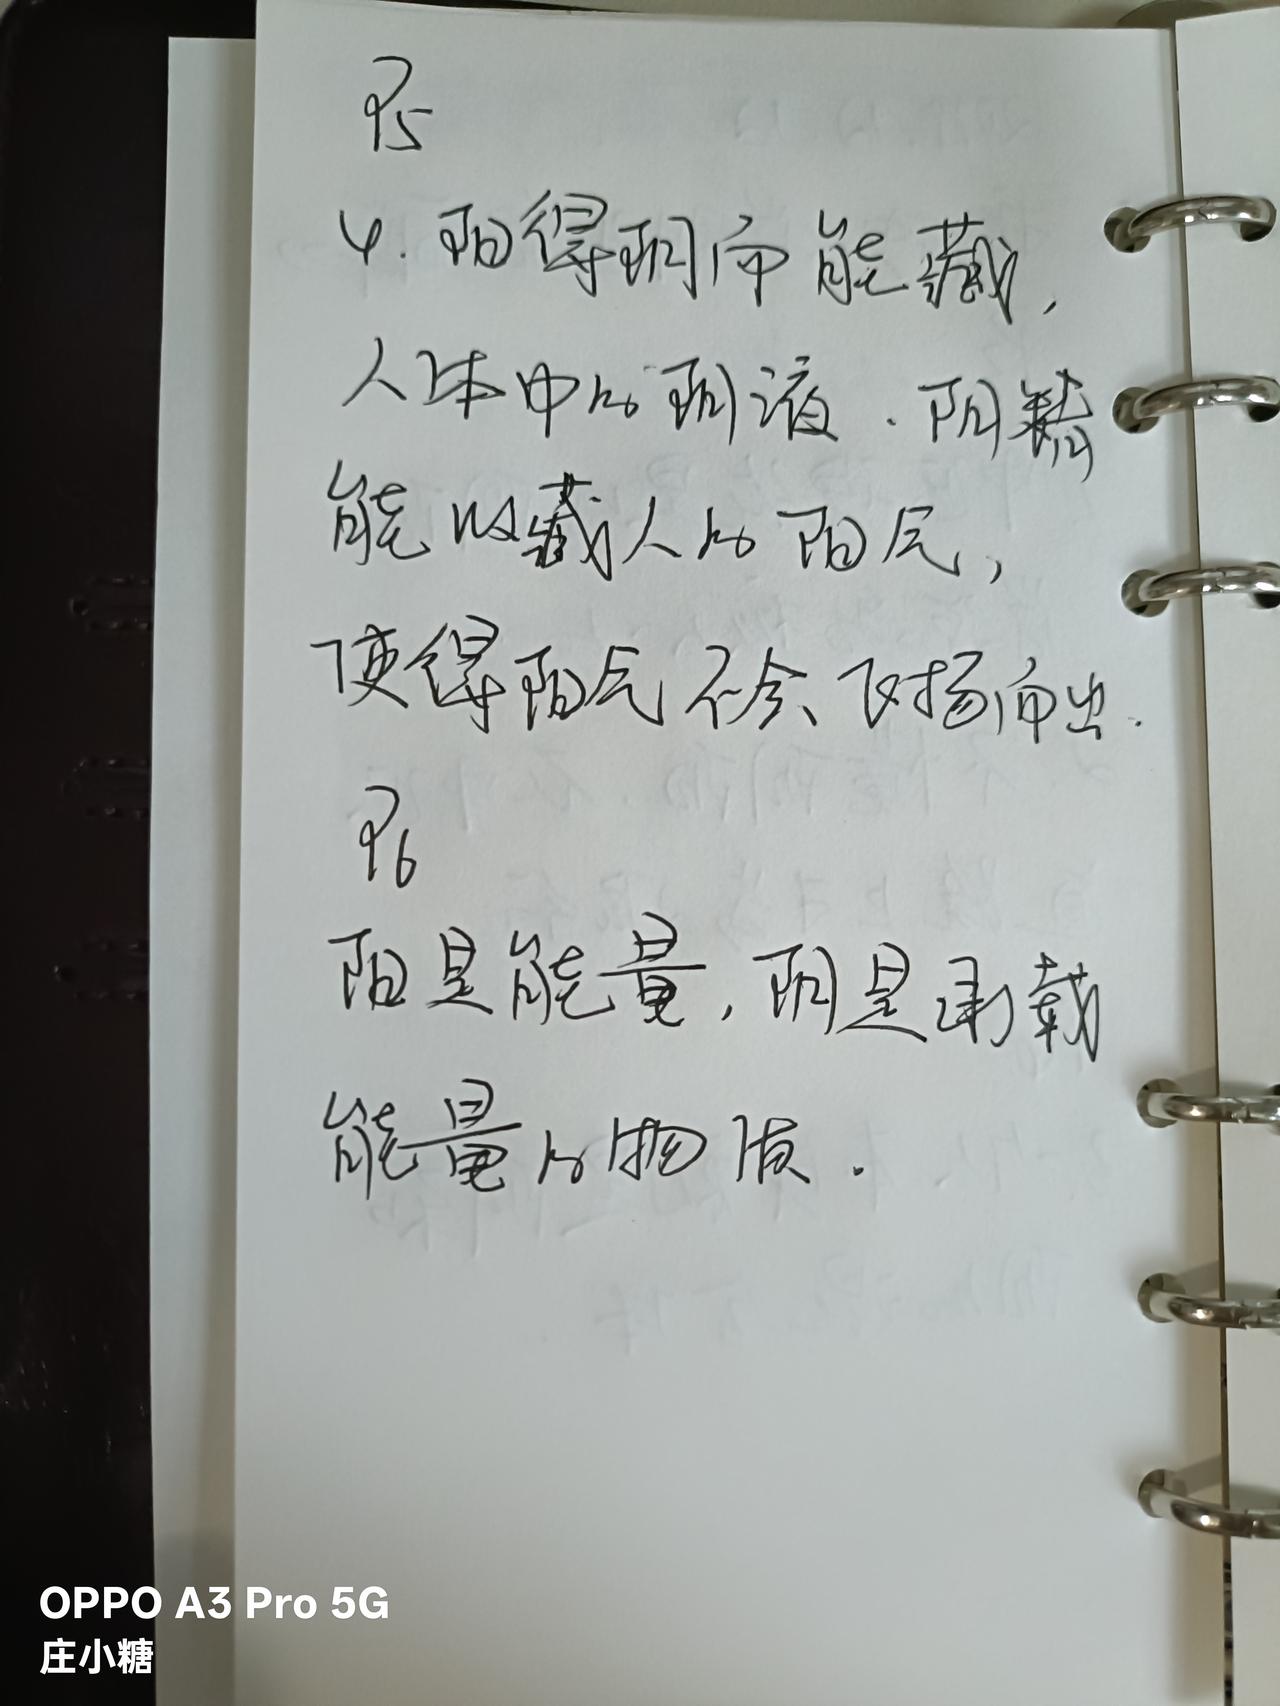 P5
4. 阳得阴而能藏,
人体中的阴液.阴精
能收藏人的阳气,
使得阳气不会飞扬而出.
P6
阳是能量,阴是承载
能量的物质.
OPPO A3 Pro 5G
庄小糖